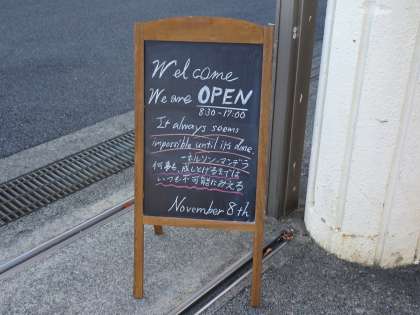 Welcome
We are OPEN
8:30~17:00
It always seems
impossible until its done.
ーネルソン・マンデラ
何事も、成しとげるまでは
いつも不可能にみえる
November 8th